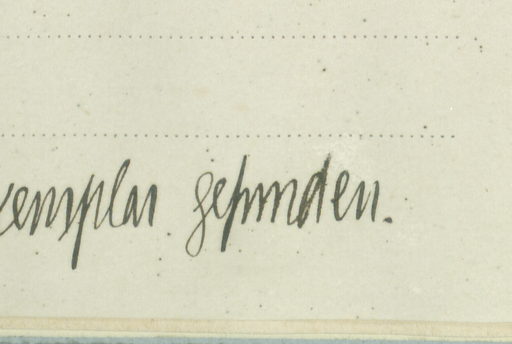 xemplar gefunden.